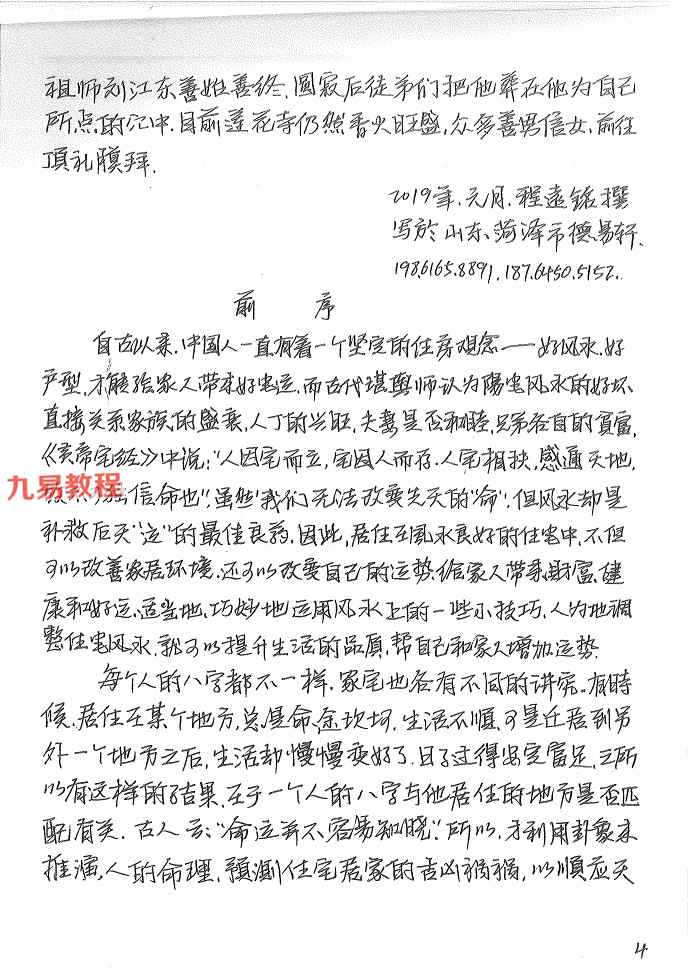 祖师到江东善始善终.圆寂后徒弟们把他葬在他为自己
所点的穴中.目前莲花寺仍然香火旺盛,众多善男信女,前往
顶礼膜拜.
2019年.元月.程远铭撰
写於山东、菏泽市德易轩.
198.6165.8891.187.6450.5152.
前 序
自古以来.中国人一直有着一个坚定的住房观念——好风水.好
户型,才能给家人带来好宅运.而古代堪舆师认为陽宅风水的好坏
直接关系家族的盛衰,人丁的兴旺,夫妻是否和睦,兄弟各自的貧富,
《黄帝宅经》中说:"人因宅而立,宅因人而存.人宅相扶,感通天地,
九易教程
信命也".虽然"我们无法改变先天的"命".但风水却是
补救后天"运"的最佳良药.因此,居住在風水良好的住宅中.不但
可以改善家居环境.还可以改变自己的运势.给家人带来財富、健
康和好运.适当地、巧妙地运用风水上的一些小技巧.人为地调
整住宅风水.就可以提升生活的品质,帮自己和家人增加运势.
每个人的八字都不一样.家宅也各有不同的讲究.有時
候.居住在某个地方,总是命途坎坷.生活不順.可是迁居到另
外一个地方之后,生活却慢慢变好了.日子过得安定富足,之所
以有这样的结果.在于一个人的八字与他居住的地方是否匹
配有关.古人云:"命运并不容易知晓".所以.才利用卦象来
推演,人的命理.預測住宅居家的吉凶祸祸,以順应天
4